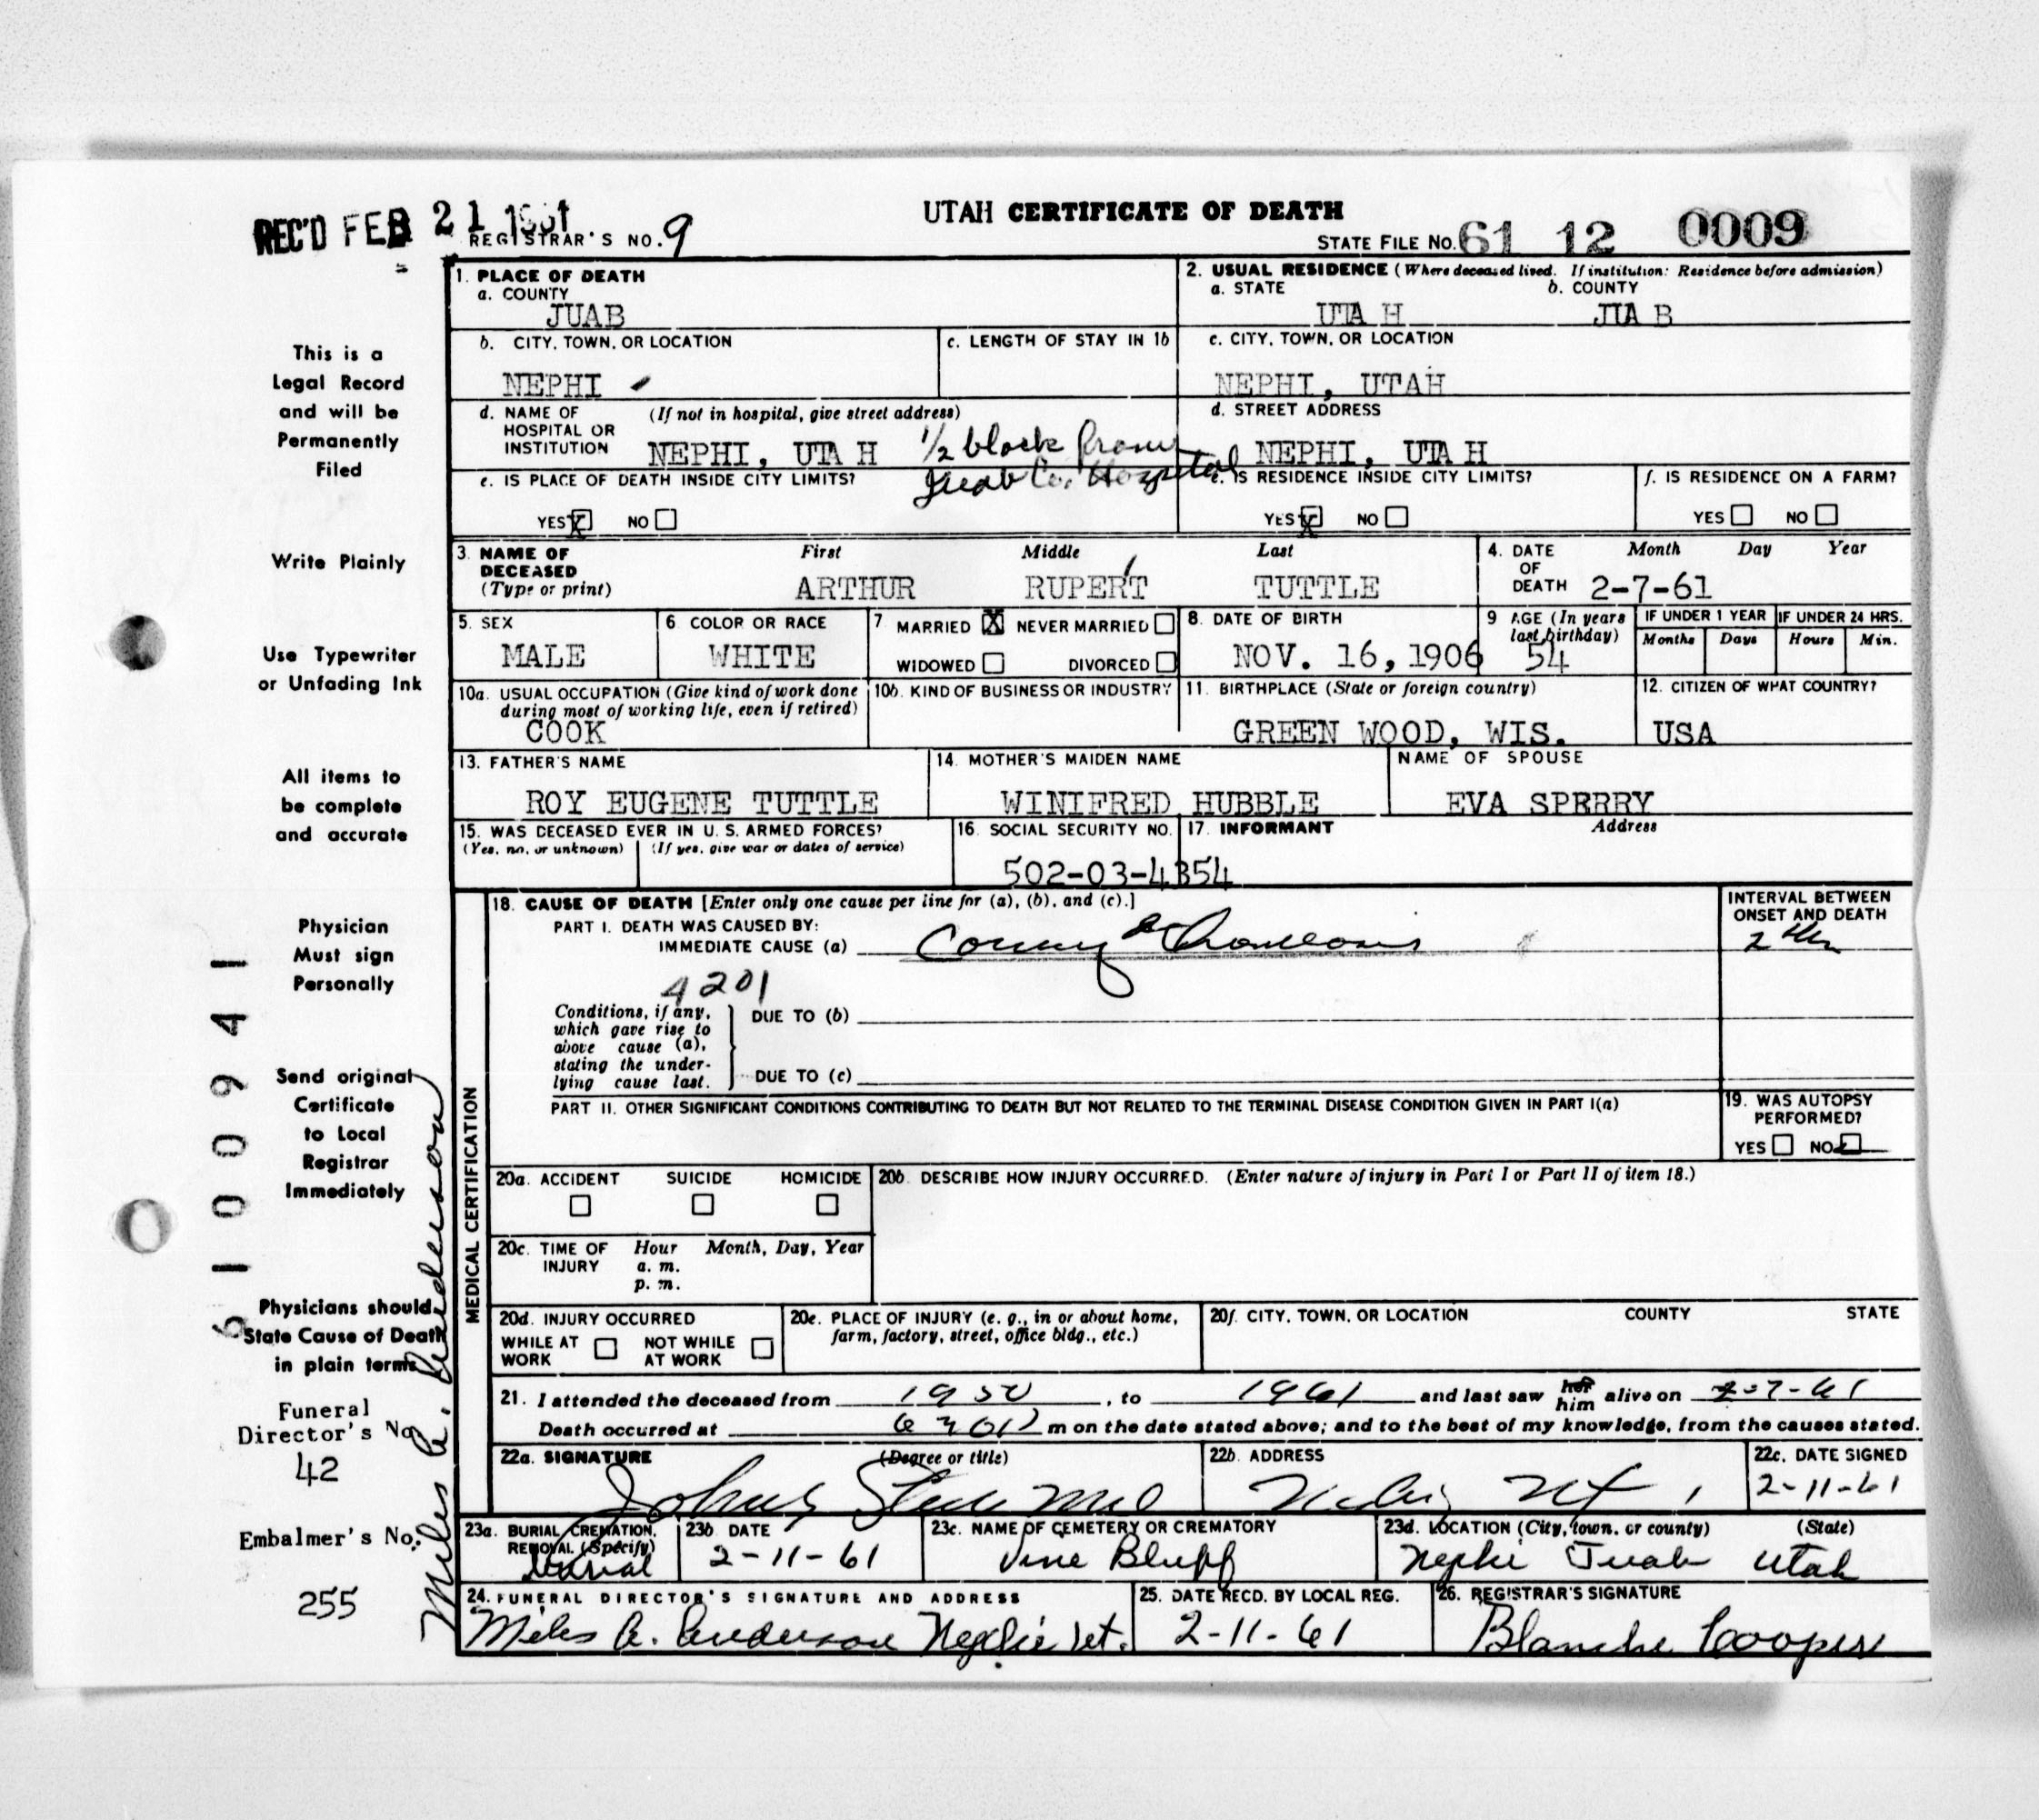 REC'D FEB 21 1961
UTAH CERTIFICATE OF DEATH
REGISTRAR'S NO. 9
STATE FILE No. 61 12 0009
1. PLACE OF DEATH
a. COUNTY
JUAB
2. USUAL RESIDENCE (Where deceased lived. If institution: Residence before admission)
a. STATE b. COUNTY
UTA H JUA B
b. CITY, TOWN, OR LOCATION
NEPHI
c. LENGTH OF STAY IN 1b
c. CITY, TOWN, OR LOCATION
NEPHI, UTAH
d. NAME OF HOSPITAL OR INSTITUTION (If not in hospital, give street address)
NEPHI, UTA H 1/2 block from
Juab Co. Hospital
d. STREET ADDRESS
NEPHI, UTA H
e. IS PLACE OF DEATH INSIDE CITY LIMITS?
YES X NO
e. IS RESIDENCE INSIDE CITY LIMITS?
YES X NO
f. IS RESIDENCE ON A FARM?
YES NO
3. NAME OF DECEASED (Type or print)
First Middle Last
ARTHUR RUPERT TUTTLE
4. DATE OF DEATH Month Day Year
2-7-61
5. SEX
MALE
6. COLOR OR RACE
WHITE
7. MARRIED X NEVER MARRIED
WIDOWED DIVORCED
8. DATE OF BIRTH
NOV. 16, 1906
9 AGE (In years last birthday)
54
IF UNDER 1 YEAR IF UNDER 24 HRS.
Months Days Hours Min.
10a. USUAL OCCUPATION (Give kind of work done during most of working life, even if retired)
COOK
10b. KIND OF BUSINESS OR INDUSTRY
11. BIRTHPLACE (State or foreign country)
GREEN WOOD, WIS.
12. CITIZEN OF WHAT COUNTRY?
USA
13. FATHER'S NAME
ROY EUGENE TUTTLE
14. MOTHER'S MAIDEN NAME
WINIFRED HUBBLE
NAME OF SPOUSE
EVA SPERRY
15. WAS DECEASED EVER IN U. S. ARMED FORCES?
(Yes, no, or unknown) (If yes, give war or dates of service)
16. SOCIAL SECURITY NO.
502-03-4354
17. INFORMANT Address
MEDICAL CERTIFICATION
18. CAUSE OF DEATH [Enter only one cause per line for (a), (b), and (c).]
PART I. DEATH WAS CAUSED BY:
IMMEDIATE CAUSE (a)
INTERVAL BETWEEN ONSET AND DEATH
2
4201
Conditions, if any, which gave rise to above cause (a), stating the underlying cause last.
DUE TO (b)
DUE TO (c)
PART II. OTHER SIGNIFICANT CONDITIONS CONTRIBUTING TO DEATH BUT NOT RELATED TO THE TERMINAL DISEASE CONDITION GIVEN IN PART I(a)
19. WAS AUTOPSY PERFORMED?
YES NO
20a. ACCIDENT SUICIDE HOMICIDE
20b. DESCRIBE HOW INJURY OCCURRED. (Enter nature of injury in Part I or Part II of item 18.)
20c. TIME OF INJURY Hour Month, Day, Year
a. m.
p. m.
20d. INJURY OCCURRED
WHILE AT WORK NOT WHILE AT WORK
20e. PLACE OF INJURY (e. g., in or about home, farm, factory, street, office bldg., etc.)
20f. CITY, TOWN, OR LOCATION COUNTY STATE
21. I attended the deceased from 1950, to 1961 and last saw her him alive on 2-7-61
Death occurred at m on the date stated above; and to the best of my knowledge, from the causes stated.
22a. SIGNATURE (Degree or title)
22b. ADDRESS
22c. DATE SIGNED
2-11-61
23a. BURIAL, CREMATION, REMOVAL (Specify)
Burial
23b. DATE
2-11-61
23c. NAME OF CEMETERY OR CREMATORY
Vine Bluff
23d. LOCATION (City, town, or county) (State)
Nephi Juab Utah
24. FUNERAL DIRECTOR'S SIGNATURE AND ADDRESS
Miles A. Anderson Nephi Ut.
25. DATE RECD. BY LOCAL REG.
2-11-61
26. REGISTRAR'S SIGNATURE
Blanche Cooper
This is a
Legal Record
and will be
Permanently
Filed
Write Plainly
Use Typewriter
or Unfading Ink
All items to
be complete
and accurate
Physician
Must sign
Personally
Send original
Certificate
to Local
Registrar
Immediately
Physicians should
State Cause of Death
in plain terms
Funeral
Director's No
42
Embalmer's No.
255
Miles A. Anderson
6100941